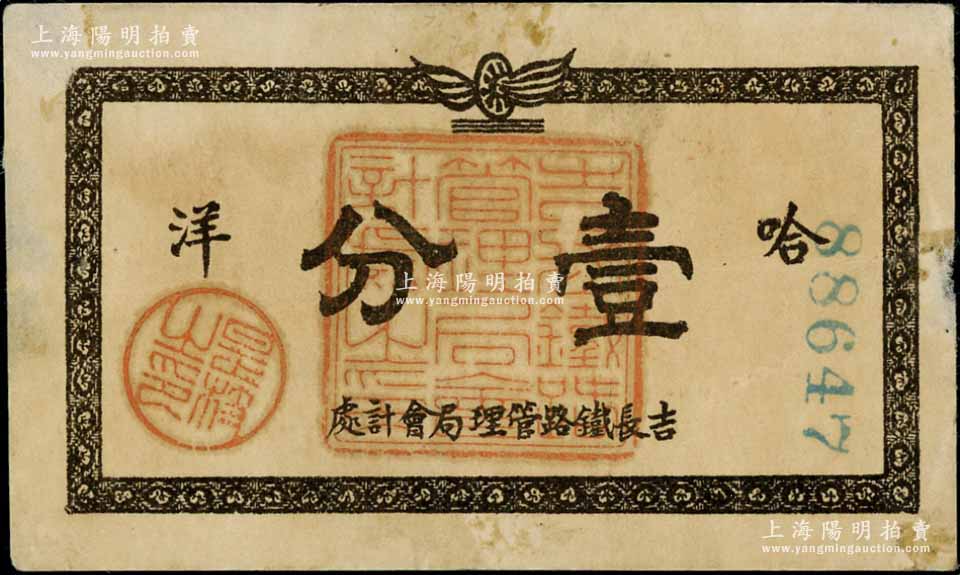 上海陽明拍賣
www.yangmingauction.com
哈 洋
壹分
吉長鐵路管理局會計處
88647
上海陽明拍賣
www.yangmingauction.com
上海陽明拍賣
www.yangmingauction.com